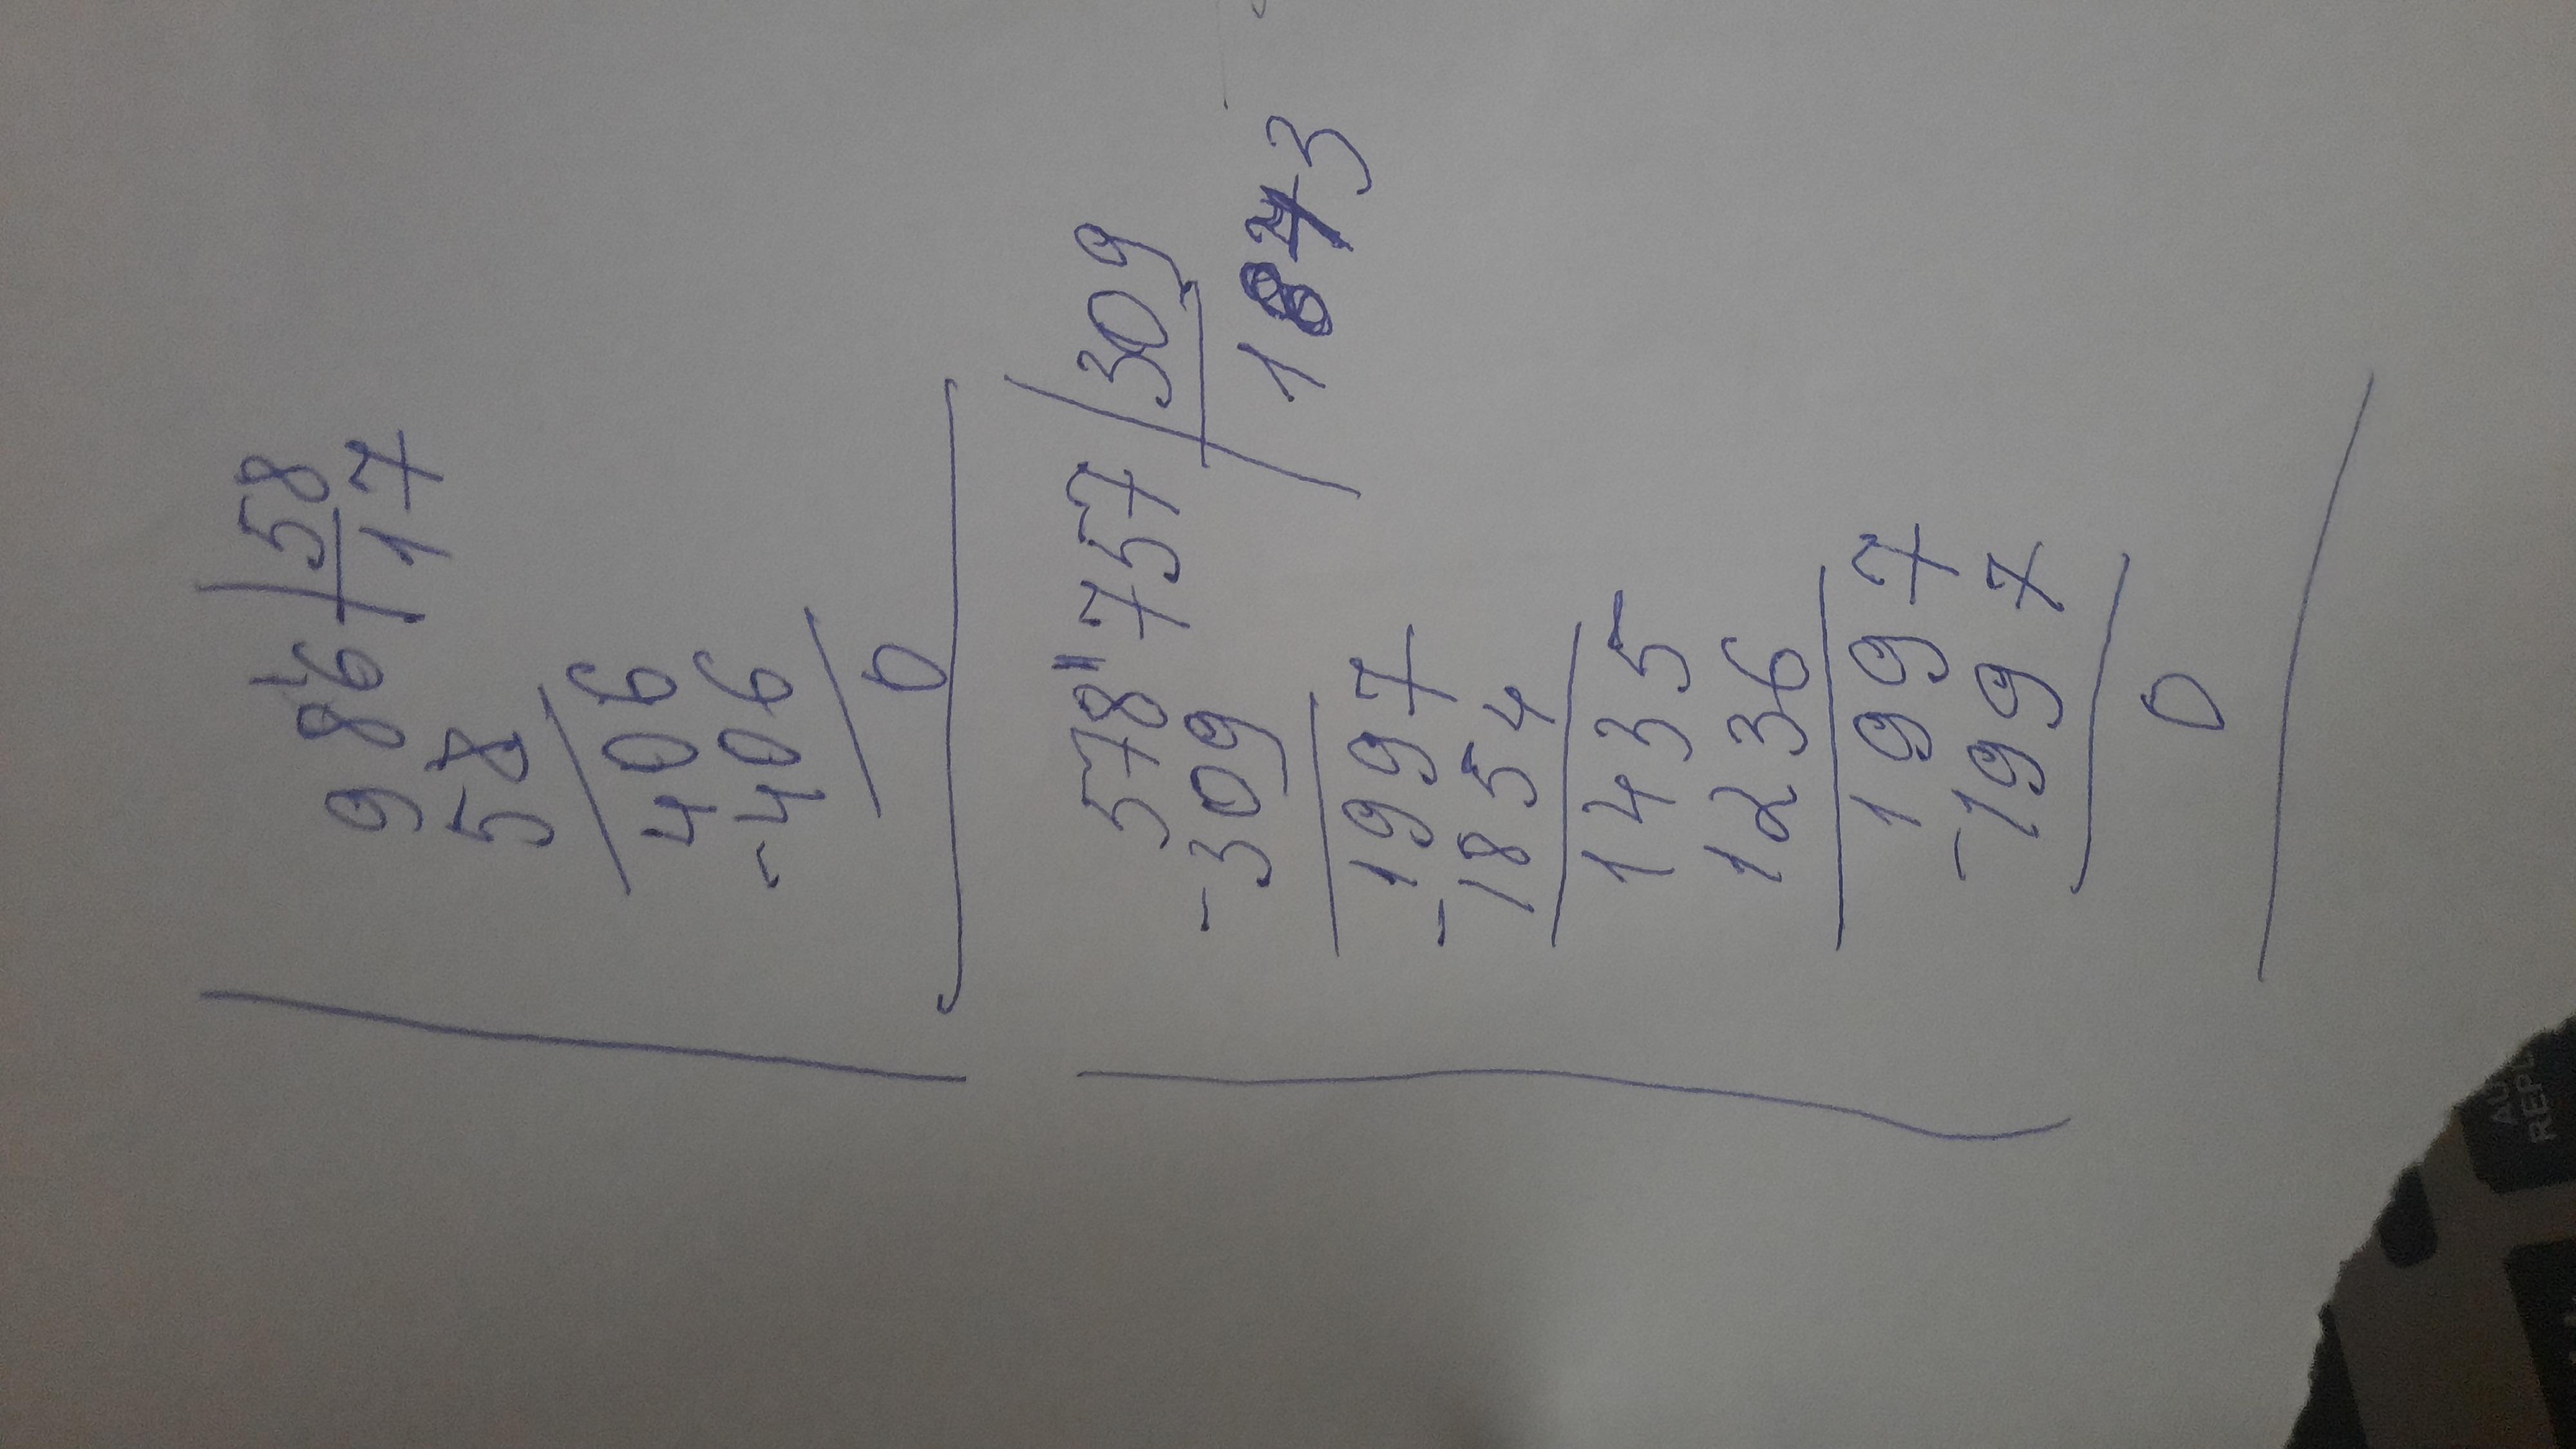 986 | 58
58 17
406
-406
0
578" 757 | 309
-309 1873
1997
-1854
1435
1236
1997
-1997
0